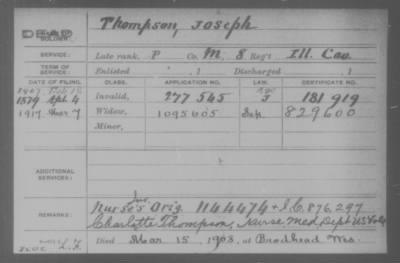 Thompson, Joseph
DEAD
SOLDIER:
SERVICE: Late rank, P Co. M, 8 Reg't Ill. Cav.
TERM OF SERVICE: Enlisted , 1 Discharged , 1
DATE OF FILING. CLASS. APPLICATION NO. LAW. CERTIFICATE NO.
1879 Apl 4 Invalid, 277 545 J 181 919
1917 Mar 7 Widow, 1095605 829600
Minor,
ADDITIONAL SERVICES:
Inv.
REMARKS: Nurse's Orig. 1144474 + I.C. 876,297
Charlotte Thompson, Nurse Med. Dept. US Vols
Died Mar. 15, 1908, at Brodhead Wis.